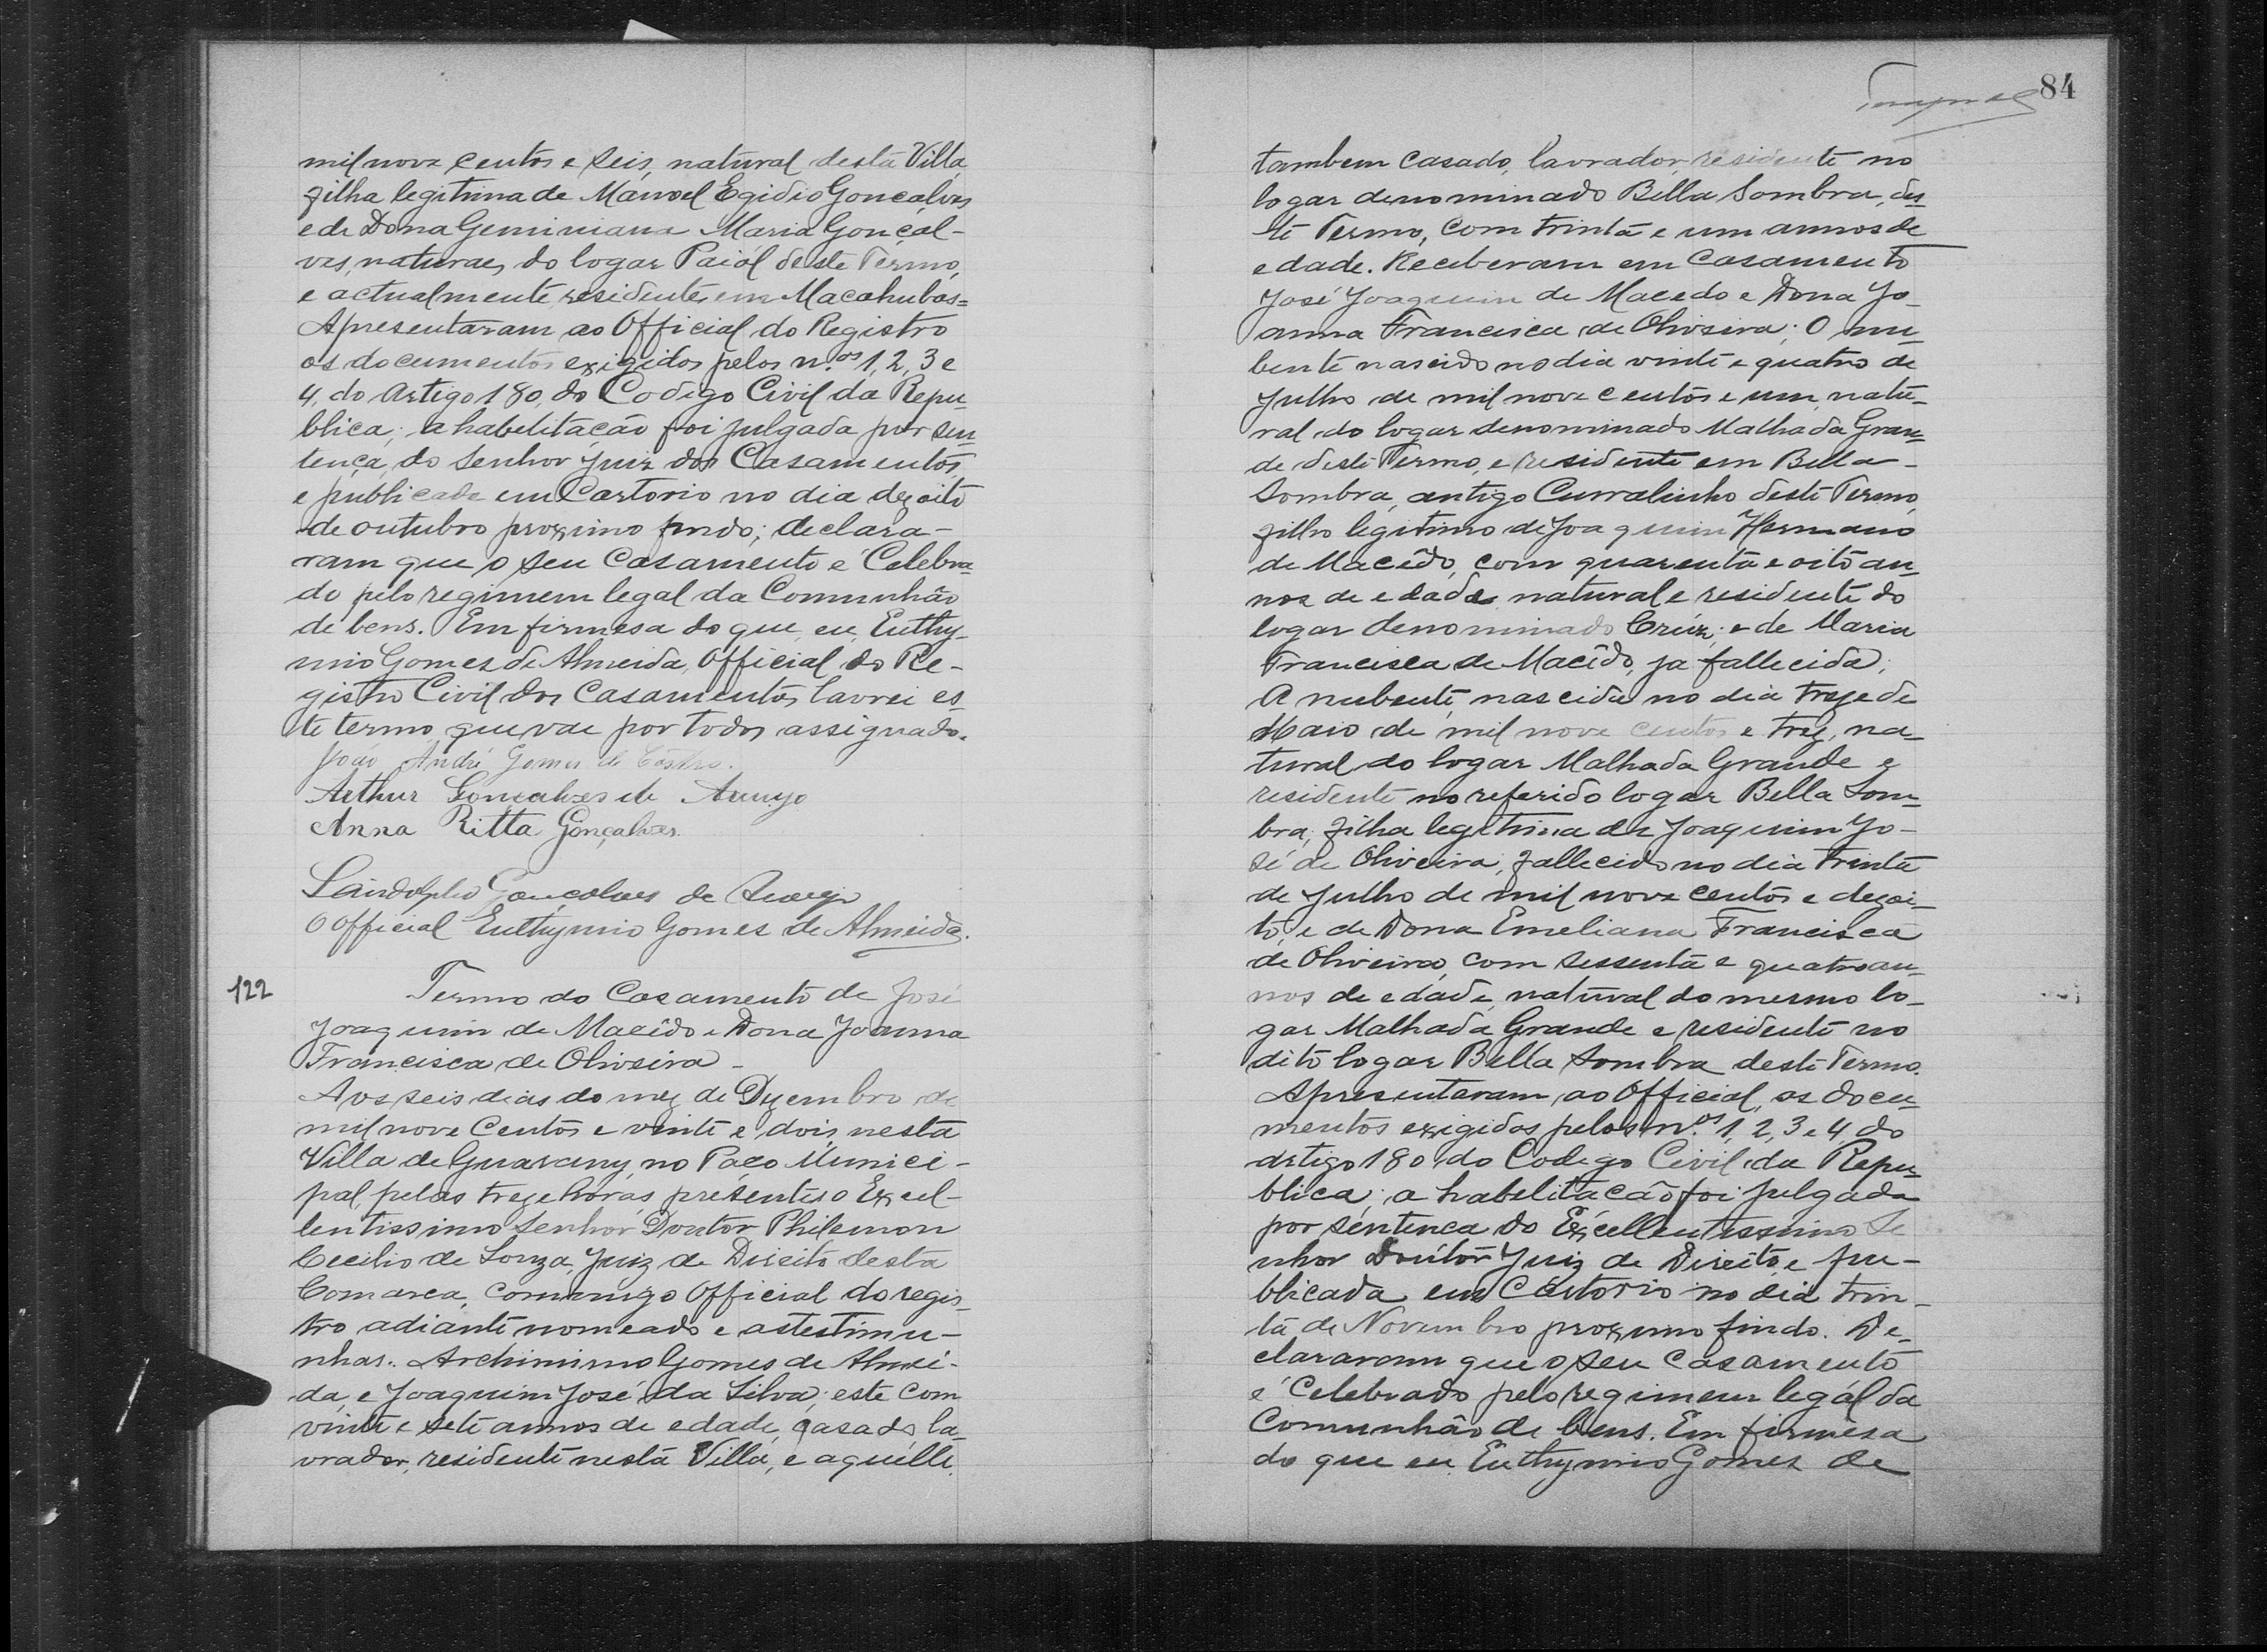 mil nove centos e seis, natural desta Villa,
filha legitima de Manoel Egidio Gonçalves
e de Dona Geminiana Maria Gonçal-
ves, naturaes do logar Paiól deste Termo,
e actualmente residentes em Macahubas=
Apresentaram ao Official do Registro
os documentos exigidos pelos n.os 1, 2, 3 e
4, do Artigo 180, do Codigo Civil da Repu-
blica; a habelitação foi julgada por sen-
tença do Senhor Juiz dos Casamentos
e publicada em Cartorio no dia dezoito
de outubro proximo findo; declara-
ram que o seu Casamento é Celebra-
do pelo regimem legal da Communhão
de bens. Em firmesa do que, eu, Euthy-
mio Gomes de Almeida, Official do Re-
gistro Civil dos Casamentos, lavrei es-
te termo, que vae por todos assignado.
João André Gomes de Castro.
Arthur Gonçalves de Araujo
Anna Ritta Gonçalves.
Landolpho Gonçalves de Araujo
O Official Euthymio Gomes de Almeida.
122
Termo do Casamento de José
Joaquim de Macêdo e Dona Joanna
Francisca de Oliveira -
Aos seis dias do mez de Dezembro de
mil nove Centos e vinte e dois, nesta
Villa de Guarany, no Paço Munici-
pal, pelas treze horas, presentes o Excel-
lentissimo Senhor Doutor Philemon
Cecilio de Souza, Juiz de Direito desta
Comarca, commigo Official do regis-
tro adiante nomeado e as testimu-
nhas: Archimimo Gomes de Almei-
da, e Joaquim José da Silva; este com
vinte e sete annos de edade, casado, la-
vrador, residente nesta Villa, e aquelle,
84
tambem casado, lavrador, residente no
logar denominado Bella Sombra, des-
te Termo, com trinta e um annos de
edade. Receberam em Casamento
José Joaquim de Macedo e Dona Jo-
anna Francisca de Oliveira; O nu-
bente nascido no dia vinte e quatro de
Julho de mil nove centos e um, natu-
ral do logar denominado Malhada Gran-
de deste Termo, e residente em Bella-
Sombra, antigo Curralinho deste Termo,
filho legitimo de Joaquim Hermano
de Macêdo, com quarenta e oito an-
nos de edade natural e residente do
logar denominado Cruz; e de Maria
Francisca de Macêdo, já fallecida;
A nubente, nascida no dia treze de
Maio de mil nove centos e trez, na-
tural do logar Malhada Grande e
residente no referido logar Bella Som-
bra, filha legitima de Joaquim Jo-
sé de Oliveira, fallecido no dia trinta
de Julho de mil nove centos e dezoi-
to, e de Dona Emeliana Francisca
de Oliveira, com sessenta e quatro an-
nos de edade, natural do mesmo lo-
gar Malhada Grande e residente no
dito logar Bella Sombra deste Termo.
Apresentaram ao Official, os docu-
mentos exigidos pelos n.os 1, 2, 3 e 4, do
Artigo 180 do Codigo Civil da Repu-
blica; a habelitacão foi julgada
por sentença do Excellentissimo Se
nhor Doutor Juiz de Direito, e pu-
blicada em Cartorio no dia trin-
ta de Novembro proximo findo. De-
clararam que o seu Casamento
é Celebrado pelo regimem legál da
Communhão de bens. Em firmêsa
do que eu Euthymio Gomes de